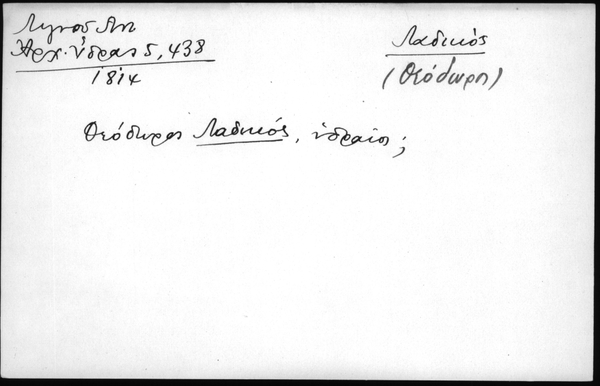 Λιγνού Αντ.
Αρχ. Ύδρας 5, 438
1814
Λαδικός
(Θεόδωρος)
Θεόδωρος Λαδικός, υδραίος;